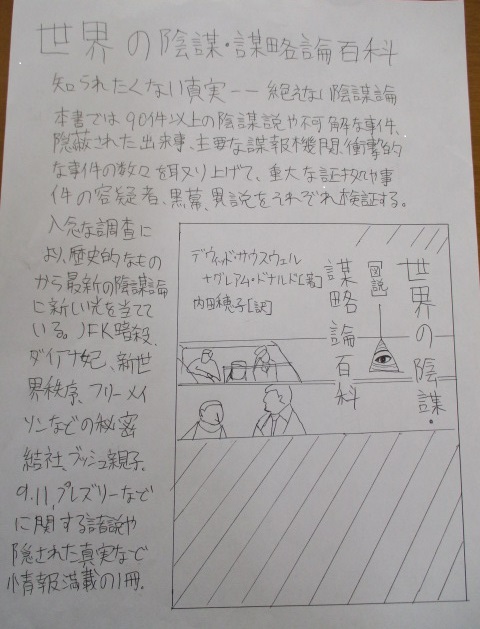 世界の陰謀・謀略論百科
知られたくない真実――絶えない陰謀論
本書では90件以上の陰謀説や不可解な事件、
隠蔽された出来事、主要な諜報機関、衝撃的
な事件の数々を取り上げて、重大な証拠や事
件の容疑者、黒幕、異説をそれぞれ検証する。
入念な調査に
より、歴史的なもの
から最新の陰謀論
に新しい光を当てて
いる。JFK暗殺、
ダイアナ妃、新世
界秩序、フリーメイ
ソンなどの秘密
結社、ブッシュ親子、
9.11、プレズリーなど
に関する諸説や
隠された真実など
情報満載の1冊.
デヴィッド・サウスウェル
+グレアム・ドナルド[著]
内田穂子[訳]
図説
世界の陰謀・
謀略論百科